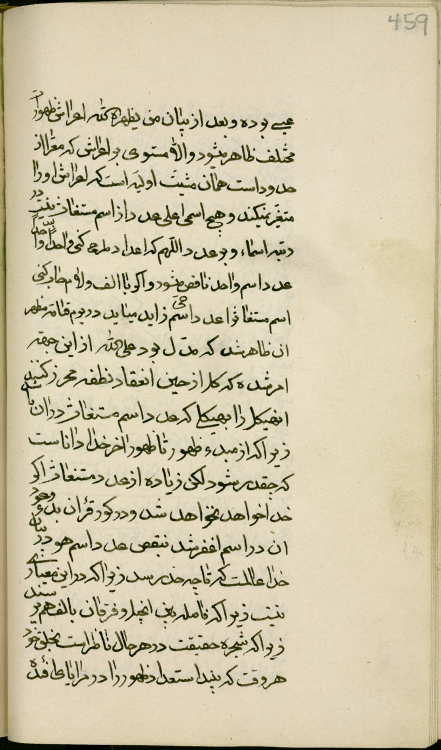 459
عیسی بوده و بعد از بیان من یظهره الله اعراش ظهور
مختلف ظاهر میشود والا مستوی بر اعراش که معرا از
حدود است همان مشیت اولیه است که اعراش او را
متغیر نمیکند و هیچ اسمی اعلی عدد از اسم مستغاث نیست در
رتبه اسماء و بر عدد اللهم که اعداد طرح کنی واحد
عدد اسم واحد ناقص میشود و اگر با الف و لام حساب کنی
اسم مستغاث عدد اسم حی زاید میآید در یوم قیامت مظهر
ان ظاهر شد که مدل بود علی الله از این جهة
امر شده که کل از حین انعقاد نطفه محرز کنند
انهیکل را بهیکلی که عدد اسم مستغاث در ان باشد
زیرا که از مبدء ظهور تا ظهور اخر خدا داناست
که چقدر شود لکن زیاده از عدد مستغاث اگر
خدا خواهد نخواهد شد و در کور قران بدء و عود
ان در اسم اغفر شد بنقص عدد اسم هو در بیان
خدا عالمست که تا چه حد رسد زیرا که در این معیاری
نیست زیرا که فاصله بین انجیل و فرقان بالف هم نرسید
زیرا که شجره حقیقت در هر حال ناظر است بخلق خود
هر وقت که بیند استعداد ظهور را در مرایای افئده